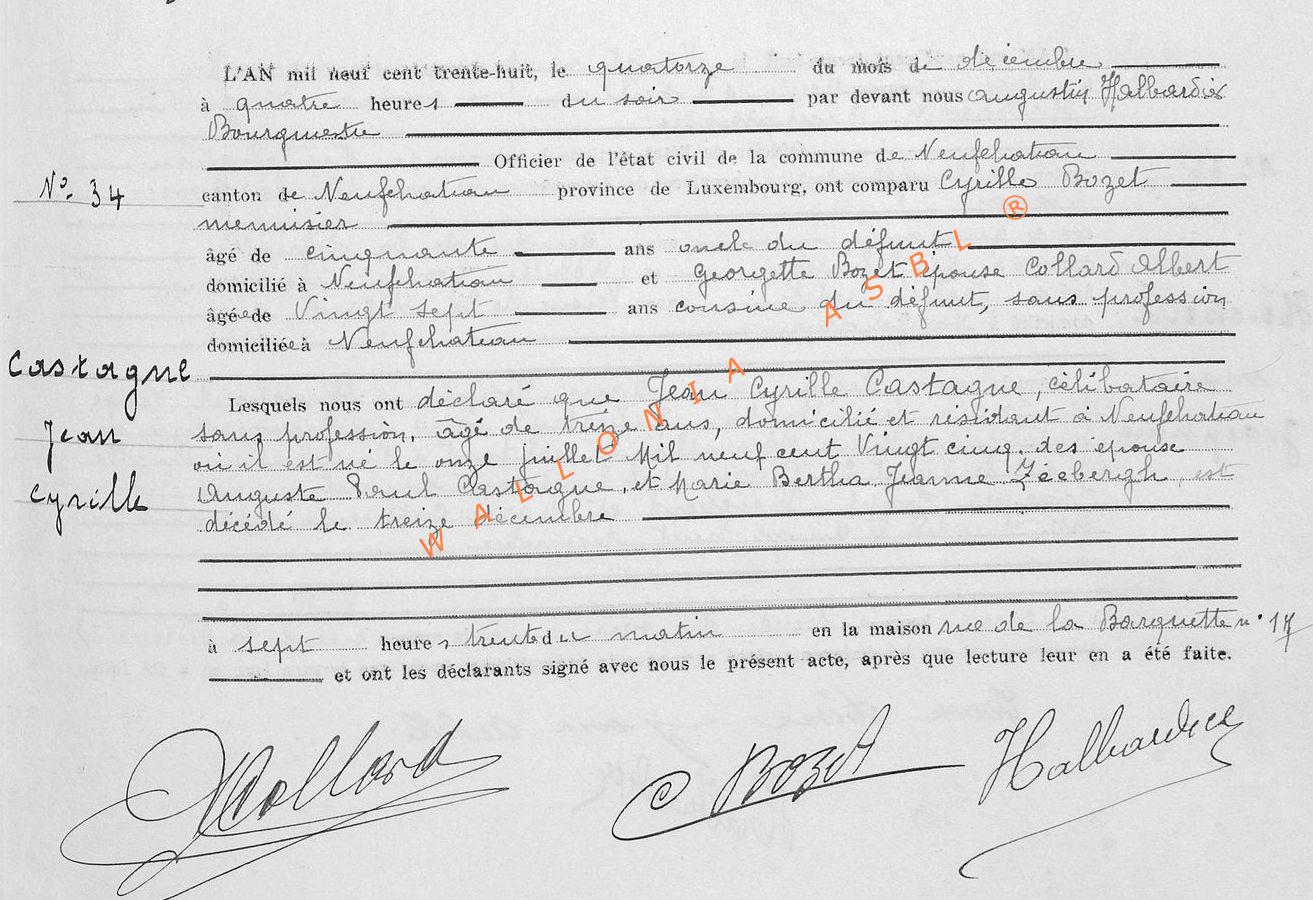 L'AN mil neuf cent trente-huit, le quatorze du mois de décembre
à quatre heures du soir par devant nous Augustin Halbardier
Bourgmestre
Officier de l'état civil de la commune de Neufchateau
N° 34
canton de Neufchateau province de Luxembourg, ont comparu Cyrille Bozet
menuisier
âgé de cinquante ans oncle du défunt
domicilié à Neufchateau et Georgette Bozet épouse Collard Albert
âgée de Vingt sept ans cousine du défunt, sans profession
domiciliée à Neufchateau
Castagne
Jean
Cyrille
Lesquels nous ont déclaré que Jean Cyrille Castagne, célibataire
sans profession, âgé de treize ans, domicilié et résidant à Neufchateau
où il est né le onze juillet Mil neuf cent Vingt cinq, des epouse
Auguste Paul Castagne, et Marie Bertha Jeanne est
décédé le treize décembre
à sept heures trente du matin en la maison rue de la Barquette n° 17
et ont les déclarants signé avec nous le présent acte, après que lecture leur en a été faite.
WALLONIA ASBL ®
Collard
C Bozet
Halbardier